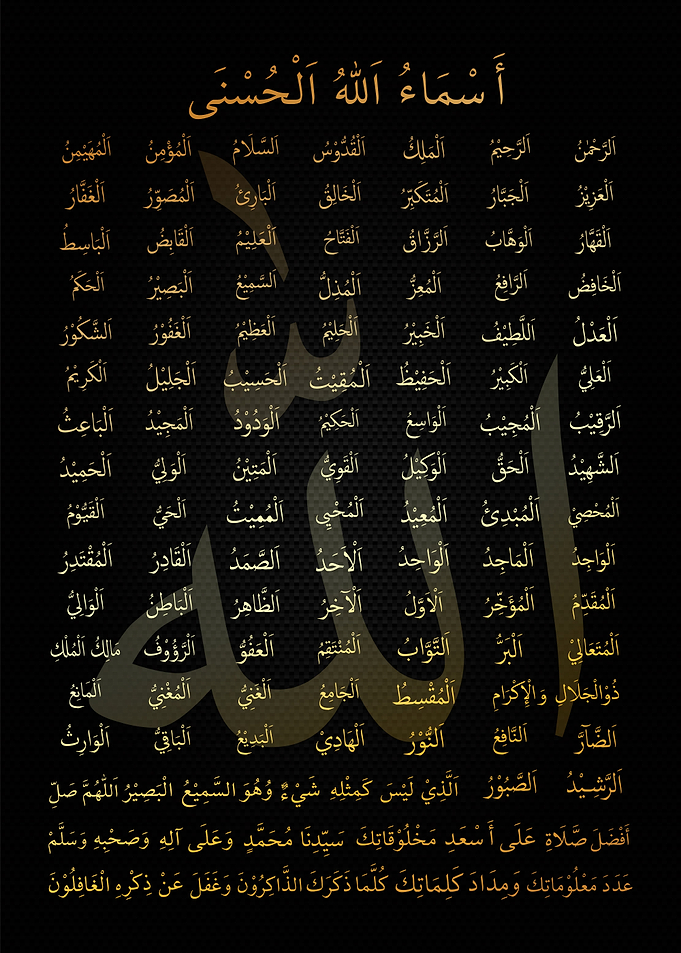 أَسْمَاءُ اَللهُ اَلْحُسْنَى
اَلرَّحْمٰنُ اَلرَّحِيْمُ اَلْمَلِكُ اَلْقُدُّوْسُ اَلسَّلَامُ اَلْمُؤْمِنُ اَلْمُهَيْمِنُ
اَلْعَزِيْزُ اَلْجَبَّارُ اَلْمُتَكَبِّرُ اَلْخَالِقُ اَلْبَارِئُ اَلْمُصَوِّرُ اَلْغَفَّارُ
اَلْقَهَّارُ اَلْوَهَّابُ اَلرَّزَّاقُ اَلْفَتَّاحُ اَلْعَلِيْمُ اَلْقَابِضُ اَلْبَاسِطُ
اَلْخَافِضُ اَلرَّافِعُ اَلْمُعِزُّ اَلْمُذِلُّ اَلسَّمِيْعُ اَلْبَصِيْرُ اَلْحَكَمُ
اَلْعَدْلُ اَللَّطِيْفُ اَلْخَبِيْرُ اَلْحَلِيْمُ اَلْعَظِيْمُ اَلْغَفُوْرُ اَلشَّكُوْرُ
اَلْعَلِيُّ اَلْكَبِيْرُ اَلْحَفِيْظُ اَلْمُقِيْتُ اَلْحَسِيْبُ اَلْجَلِيْلُ اَلْكَرِيْمُ
اَلرَّقِيْبُ اَلْمُجِيْبُ اَلْوَاسِعُ اَلْحَكِيْمُ اَلْوَدُوْدُ اَلْمَجِيْدُ اَلْبَاعِثُ
اَلشَّهِيْدُ اَلْحَقُّ اَلْوَكِيْلُ اَلْقَوِيُّ اَلْمَتِيْنُ اَلْوَلِيُّ اَلْحَمِيْدُ
اَلْمُحْصِيْ اَلْمُبْدِئُ اَلْمُعِيْدُ اَلْمُحْيِى اَلْمُمِيْتُ اَلْحَيُّ اَلْقَيُّوْمُ
اَلْوَاجِدُ اَلْمَاجِدُ اَلْوَاحِدُ اَلْاَحَدُ اَلصَّمَدُ اَلْقَادِرُ اَلْمُقْتَدِرُ
اَلْمُقَدِّمُ اَلْمُؤَخِّرُ اَلْاَوَّلُ اَلْآخِرُ اَلظَّاهِرُ اَلْبَاطِنُ اَلْوَالِيُّ
اَلْمُتَعَالِيْ اَلْبَرُّ اَلتَّوَّابُ اَلْمُنْتَقِمُ اَلْعَفُوُّ اَلرَّؤُوْفُ مَالِكُ الْمُلْكِ
ذُوْالْجَلَالِ وَالْإِكْرَامِ اَلْمُقْسِطُ اَلْجَامِعُ اَلْغَنِيُّ اَلْمُغْنِيُّ اَلْمَانِعُ
اَلضَّآرَّ اَلنَّافِعُ اَلنُّوْرُ اَلْهَادِيْ اَلْبَدِيْعُ اَلْبَاقِيُّ اَلْوَارِثُ
اَلرَّشِيْدُ اَلصَّبُوْرُ اَلَّذِيْ لَيْسَ كَمِثْلِهِ شَيْءٌ وُهُوَ السَّمِيْعُ الْبَصِيْرُ اَللهُمَّ صَلِّ
أَفْضَلَ صَّلَاةِ عَلَى أَسْعَدِ مَخْلُوْقَاتِكَ سَيِّدِنَا مُحَمَّدٍ وَعَلَى آلِهِ وَصَحْبِهِ وَسَلَّمْ
عَدَدَ مَعْلُوْمَاتِكَ وَمِدَادَ كَلِمَاتِكَ كُلَّمَا ذَكَرَكَ الذَّاكِرُوْنَ وَغَفَلَ عَنْ ذِكْرِهِ الْغَافِلُوْنَ
الله